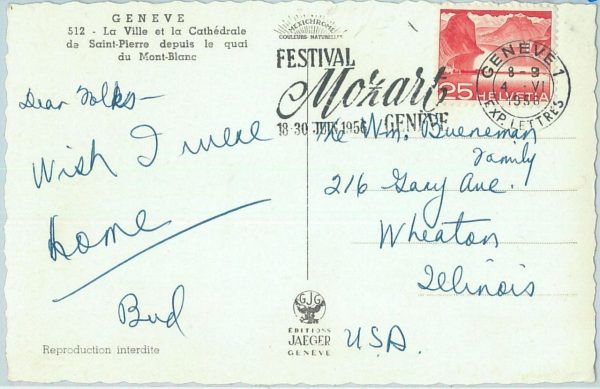 GENEVE
512 - La Ville et la Cathédrale
de Saint-Pierre depuis le quai
du Mont-Blanc
MEXICHROME
COULEURS NATURELLES
FESTIVAL
Mozart
18-30 JUIN 1956 GENÈVE
25 HELVETIA
GENÈVE 1
4. VI
1956
EXP. LETTRES
Dear Folks—
Wish I were
home
Bud
The Wm. Bueneman
Family
216 Gary Ave.
Wheaton
Illinois
U.S.A.
GJG
ÉDITIONS
JAEGER
GENÈVE
Reproduction interdite